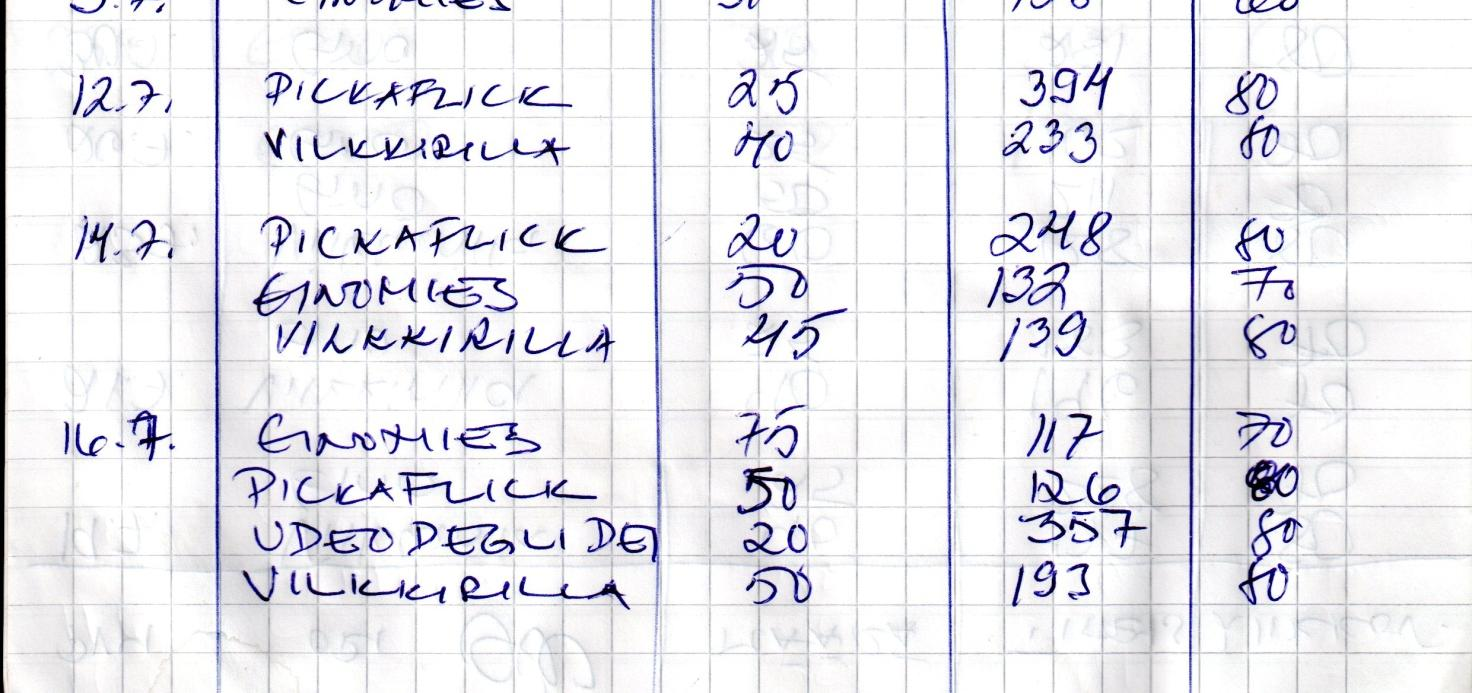 12.7. PICKAFLICK 25 394 80
VILKKIRILLA 40 233 80
14.7. PICKAFLICK 20 248 80
EINOMIES 50 132 70
VILKKIRILLA 45 139 80
16.7. EINOMIES 75 117 70
PICKAFLICK 50 126 80
UDEO DEGLI DEI 20 357 80
VILKKIRILLA 50 193 80